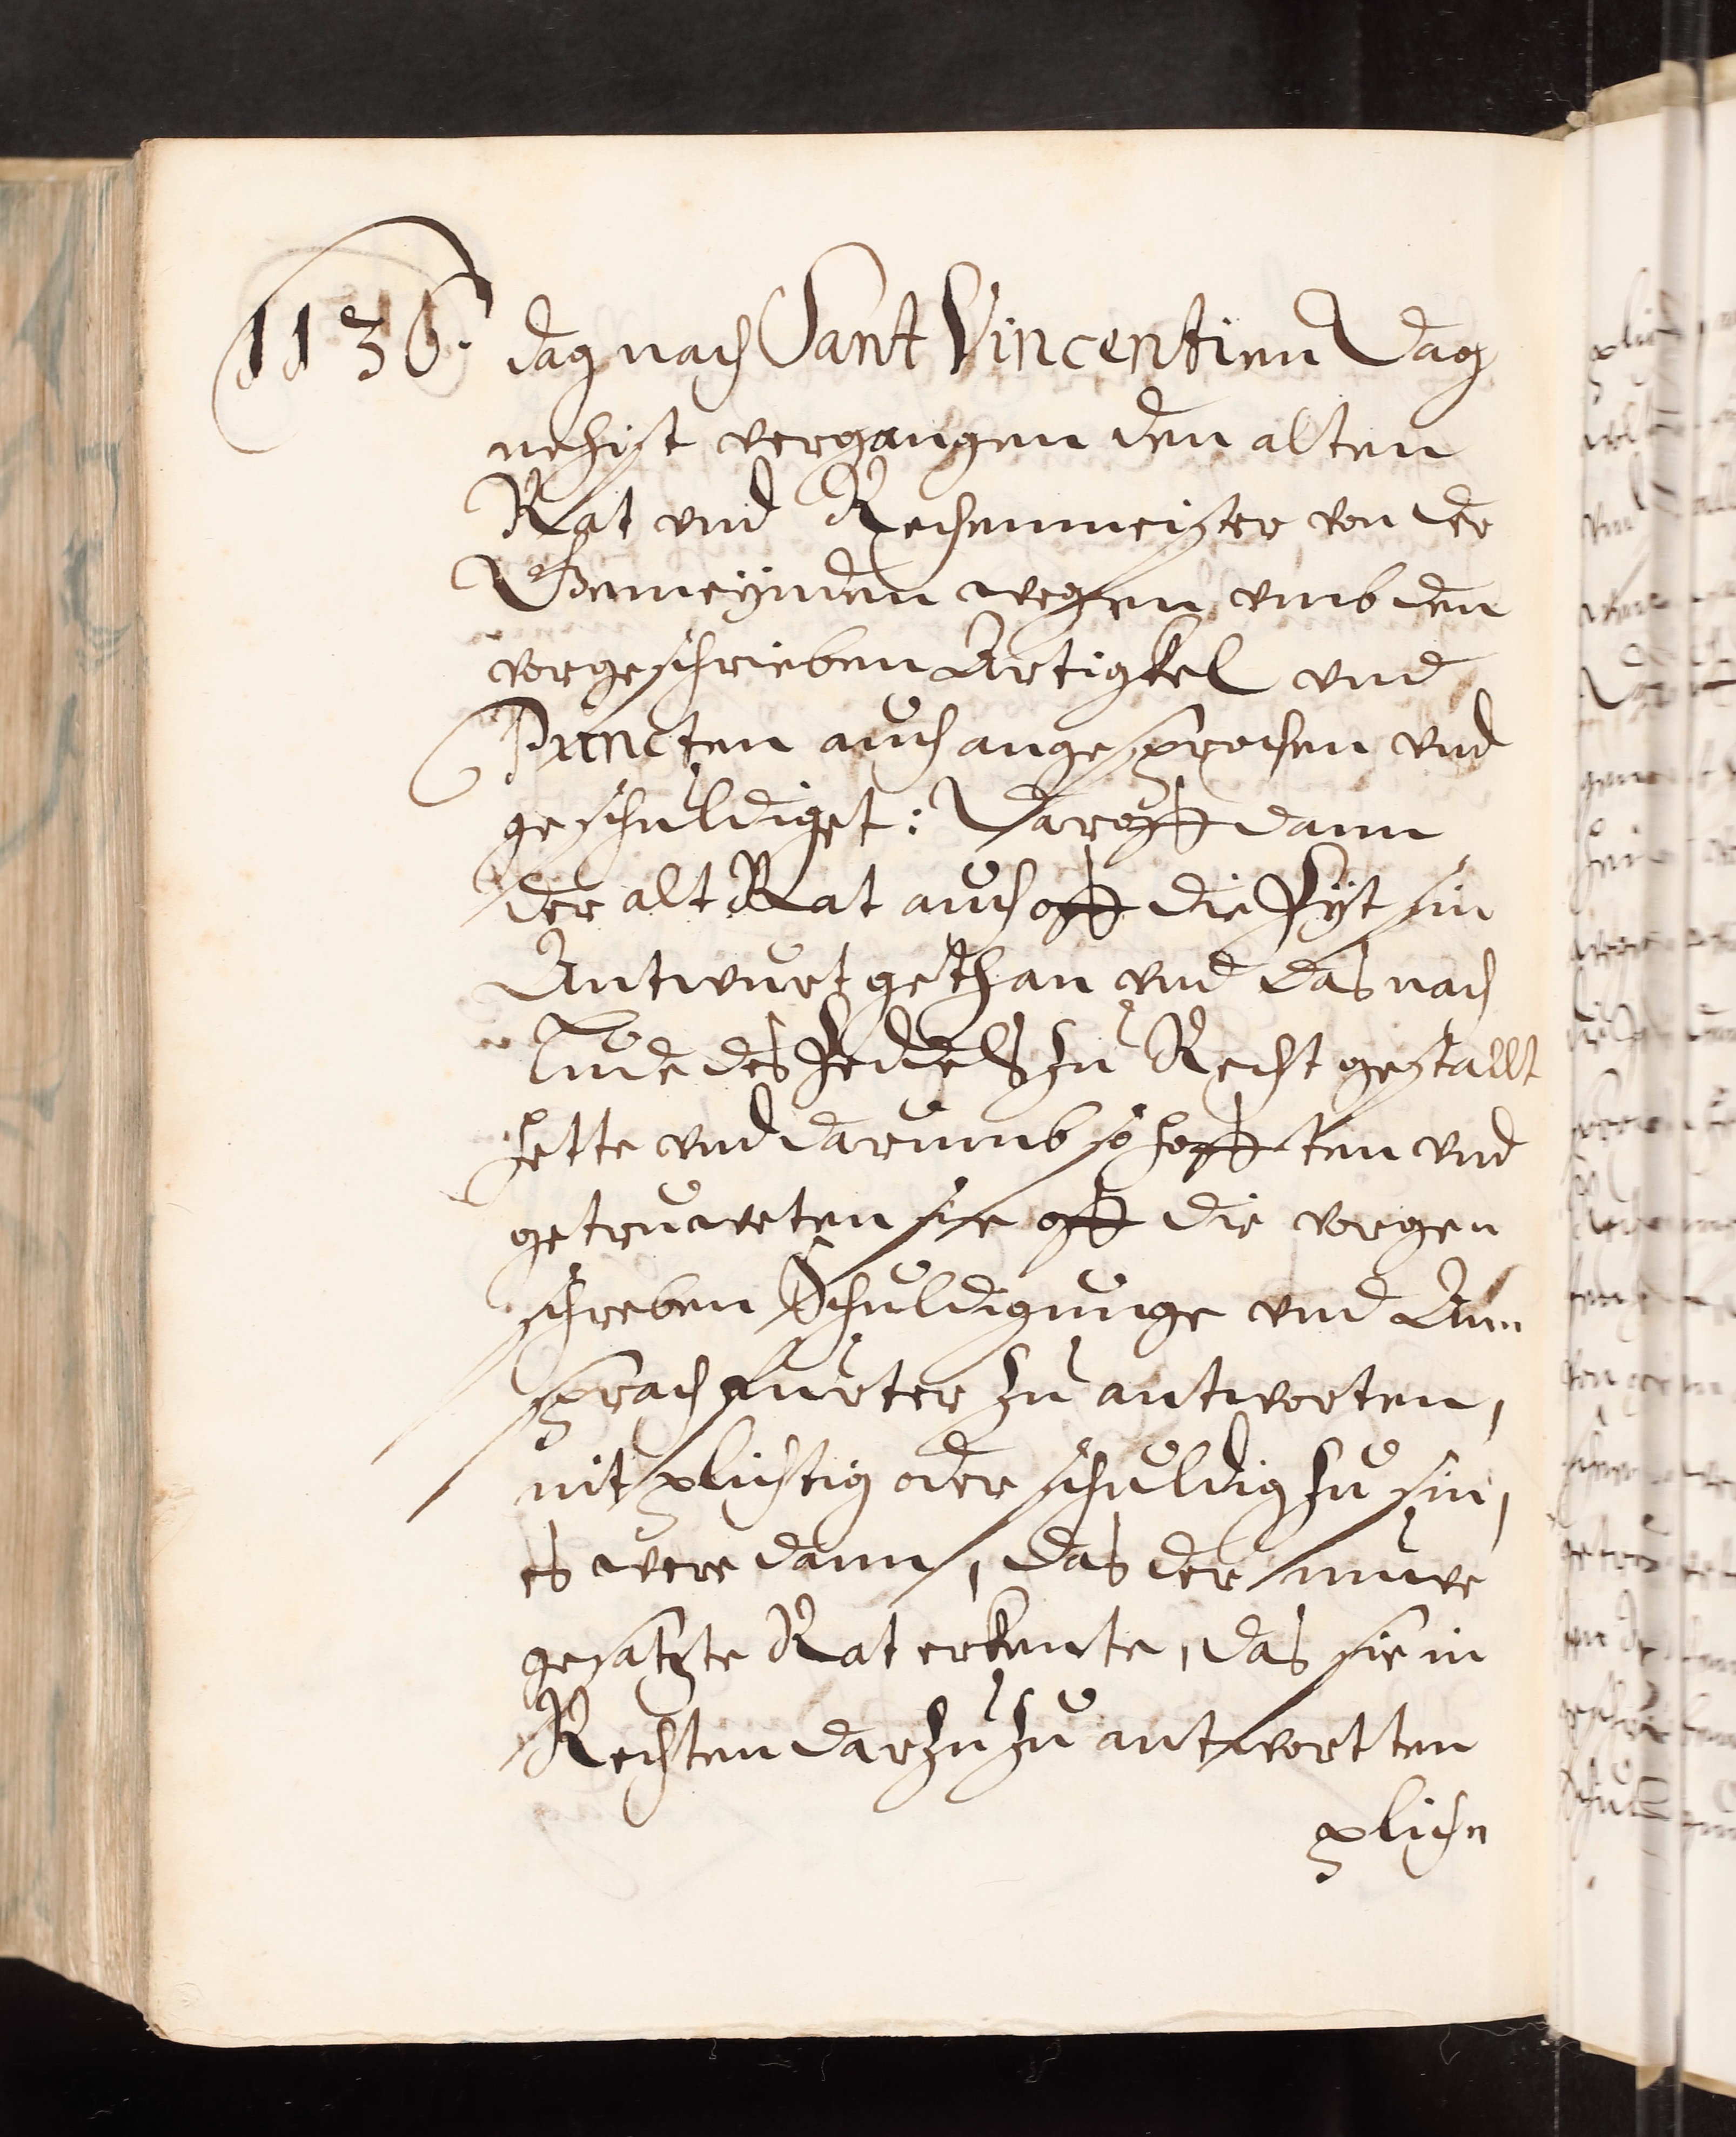 1136. dag nach Sant Vincentien Dag
nehist vergangen den alten
Rat vnd Rechenmeister von der
Gemeynden wegen, vmb den
vorgeschrieben Artigkel vnd
Puncten auch angesprochen vnd
geschuldiget: Daroff dann
der alt Rat auch off die Zyt sin
Antwurt gethan vnd das nach
Lude des Zedels zu Recht gestallt
hette vnd darumb so hofften vnd
getruweten sie off die vorgen
schreben Schuldigunge vnd An=
sprach furter zu antworten,
nit plichtig oder schuldig zu sin,
es were dann, das der nuwe
gesatzte Rat erkente, das sie in
Rechten darzu zu antwortten
plich=